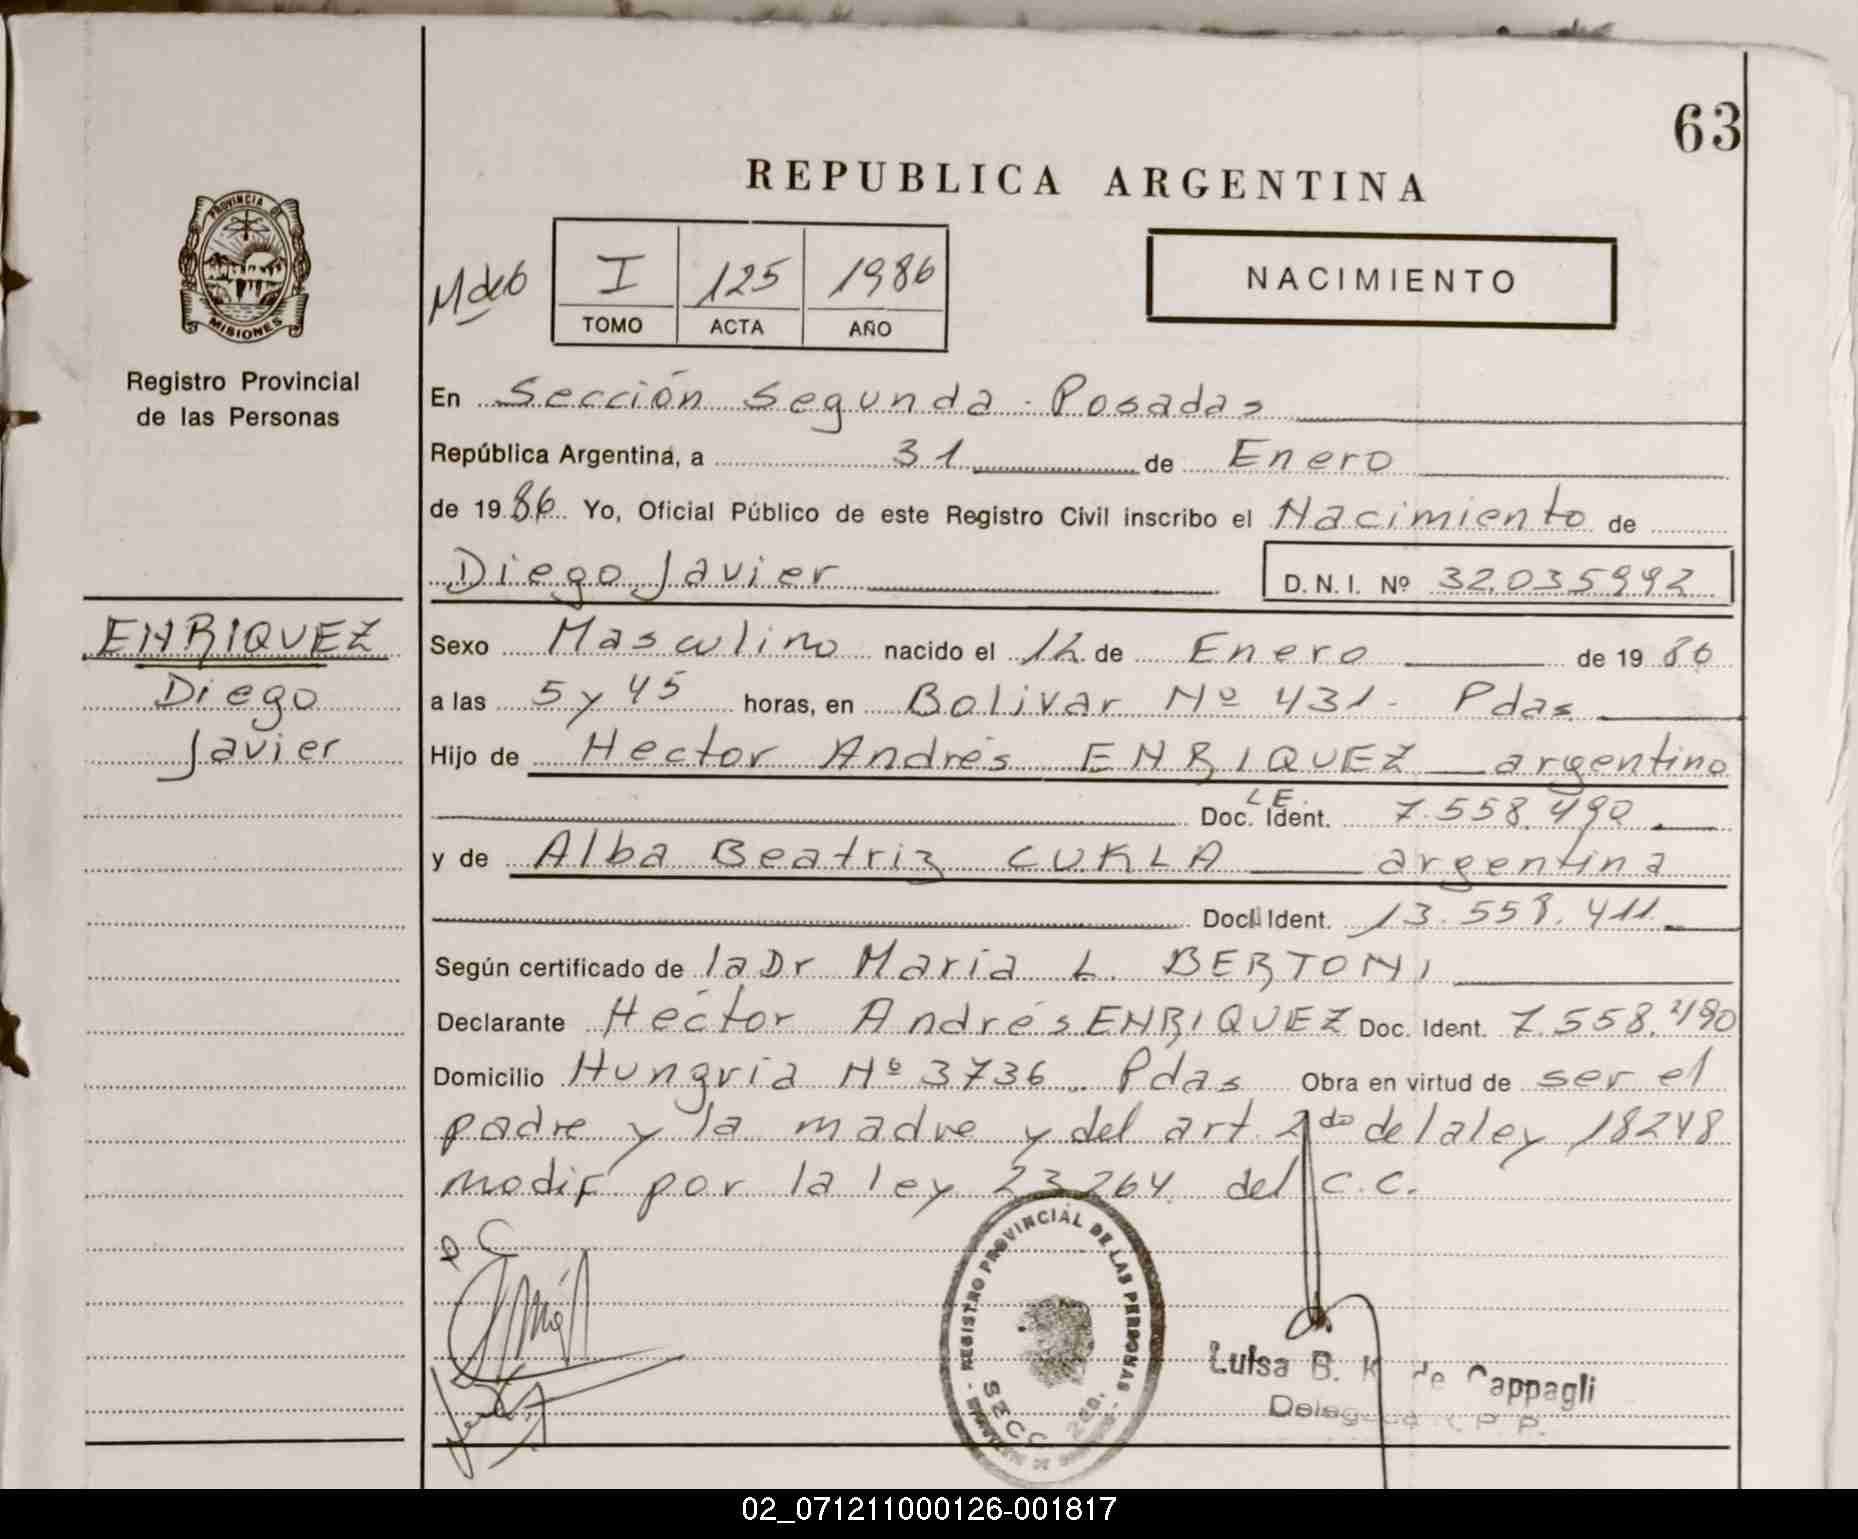 63
REPUBLICA ARGENTINA
PROVINCIA DE
MISIONES
Registro Provincial
de las Personas
I 125 1986
TOMO ACTA AÑO
NACIMIENTO
En Sección Segunda - Posadas
República Argentina, a 31 de Enero
de 1986 Yo, Oficial Público de este Registro Civil inscribo el Nacimiento de
Diego Javier D.N.I. Nº 32.035992
ENRIQUEZ
Diego
Javier
Sexo Masculino nacido el 12 de Enero de 1986
a las 5 y 45 horas, en Bolivar Nº 431 - Pdas
Hijo de Hector Andrés ENRIQUEZ argentino
L.E.
Doc. Ident. 7.558.490
y de Alba Beatriz CUKLA argentina
Doc. Ident. 13.558.411
Según certificado de la Dr Maria L. BERTONI
Declarante Héctor Andrés ENRIQUEZ Doc. Ident. 7.558.490
Domicilio Hungria Nº 3736 Pdas Obra en virtud de ser el
padre y la madre y del art 2do de la ley 18248
modif por la ley 23264 del C.C.
REGISTRO PROVINCIAL DE LAS PERSONAS
SECC. 2da.
Luisa B. K. de Cappagli
02_071211000126-001817